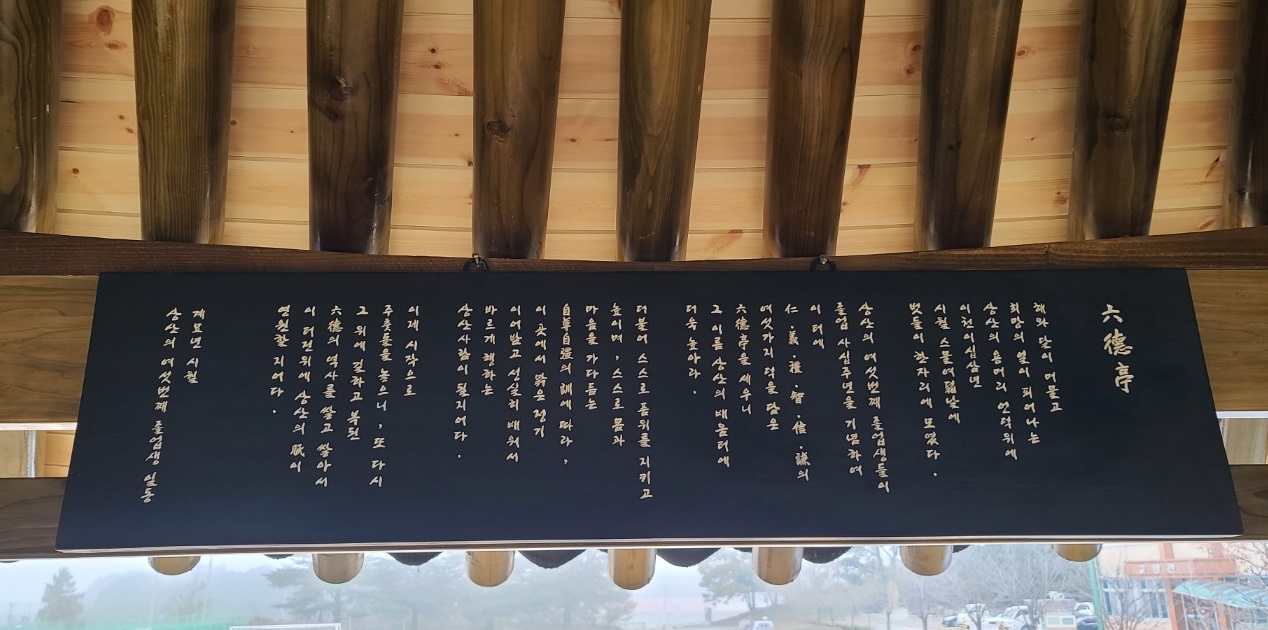 六德亭
해와 달이 머물고
희망의 열이 피어나는
상산의 용머리 언덕위에
이천이십삼년
시월 스물여덟날에
벗들이 한자리에 모였다.
상산의 여섯번째 졸업생들이
졸업 사십주년을 기념하여
이 터에
仁·義·禮·智·信·謙의
여섯가지 덕을 담은
六德亭을 세우니
그 이름 상산의 배움터에
더욱 높아라.
더불어 스스로 품위를 지키고
높이며, 스스로 몸과
마음을 가다듬는
自尊自彊의 訓에 따라,
이 곳에서 맑은 정기
이어받고 성실히 배워서
바르게 행하는
상산사람이 될지어다.
이제 시작으로
주춧돌을 놓으니, 또 다시
그 위에 길하고 복된
六德의 역사를 쌓고 쌓아서
이 터전위에 상산의 脈이
영원할 지어다.
계묘년 시월
상산의 여섯번째 졸업생 일동